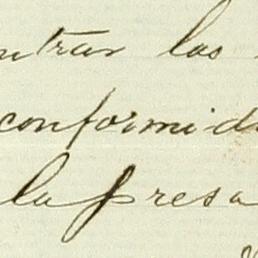 ntrar las
conformid
la presa